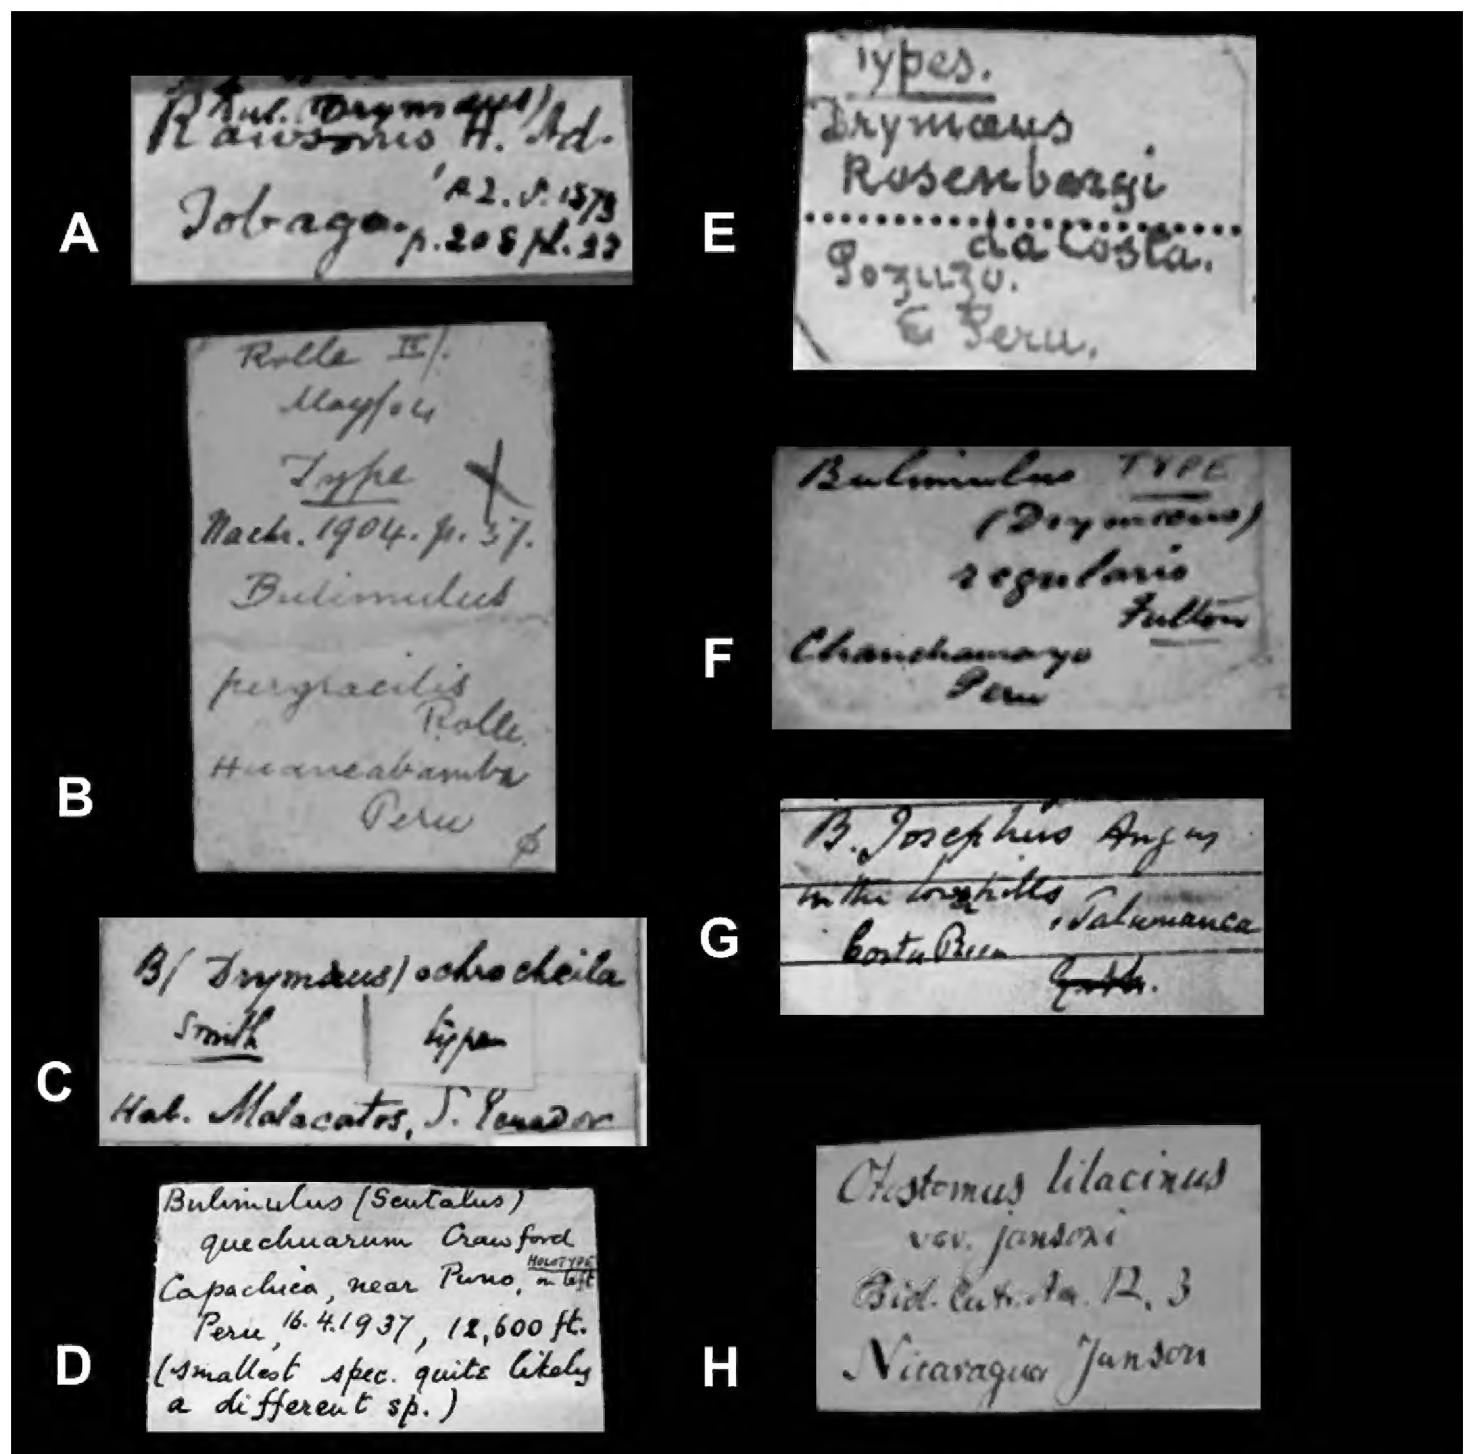 A
Bul. (Drymæus)
Rawsonis H. Ad.
P.Z.S. 1873
Tobago. p. 208 pl. 23
B
Rolle II/.
May/04
Type X
Nachr. 1904. p. 37.
Bulimulus
pergracilis
Rolle.
Huancabamba
Peru
C
B/ Drymæus) ochrocheila
Smith type
Hab. Malacatos, S. Ecuador
D
Bulimulus (Scutalus)
quechuarum Crawford
Capachica, near Puno, HOLOTYPE on left
Peru, 16.4.1937, 12,600 ft.
(smallest spec. quite likely
a different sp.)
E
Types.
Drymæus
Rosenbergi
da Costa.
Pozuzo.
E Peru.
F
Bulimulus TYPE
(Drymæus)
regularis
Fulton
Chanchamayo
Peru
G
B. Josephus Angas
in the lower hills, Talamanca
Costa Rica
H
Otostomus lilacinus
var. jansoni
Biol. Centr. Am. 12, 3
Nicaragua Janson